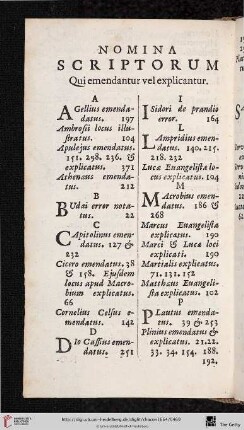 NOMINA
SCRIPTORUM
Qui emendantur vel explicantur.
A
AGellius emenda-
datus. 197
Ambrosii locus illu-
stratus. 104
Apulejus emendatus.
151. 298. 236. &
explicatus. 371
Athenæus emenda-
tus. 212
B
BUdæi error nota-
tus. 22
C
CApitolinus emen-
datus. 127 &
232
Cicero emendatus. 38
& 158. Ejusdem
locus apud Macro-
bium explicatus.
66
Cornelius Celsus e-
mendatus. 142
D
DIo Cassius emen-
datus. 251
I
ISidori de prandio
error. 164
L
LAmpridius emen-
datus. 140. 215.
218. 232
Lucæ Evangelistæ lo-
cus explicatus. 104
M
MAcrobius emen-
datus. 186 &
268
Marcus Evangelista
explicatus. 190
Marci & Lucæ loci
explicati. 190
Martialis explicatus.
71. 132. 152
Matthæus Evangeli-
sta explicatus. 102
P
PLautus emenda-
tus. 39 & 253
Plinius emendatus &
explicatus. 21. 22.
33. 34. 154. 188.
192.